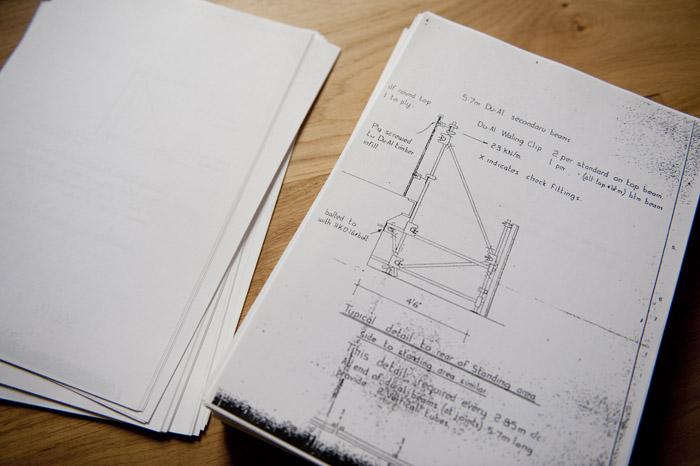 round top
to ply.
5·7m Du-Al secondary beams
Ply screwed
to Du-Al timber
infill
Du-Al Waling Clip 2 per standard on top beam.
23 kN/m
1 per " btm beam
X indicates check fittings.
bolted to
with
4'6"
Typical detail to rear of standing area
side to standing area similar
This detail required every 2.85m c/c.
At end of dual beams (at joints) 5·7m long
provide 2 vertical tubes